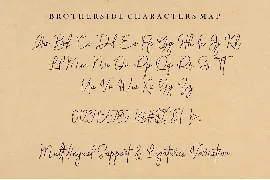 BROTHERSIDE CHARACTERS MAP
Aa Bb Cc Dd Ee Ff Gg Hh Ii Jj Kk
Ll Mm Nn Oo Pp Qq Rr Ss Tt
Uu Vv Ww Xx Yy Zz
Multilingual Support & Ligature Variation